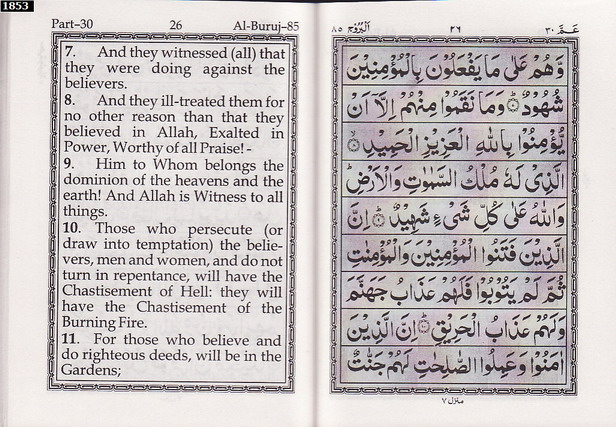 1853
Part–30 26 Al-Buruj–85
7. And they witnessed (all) that
they were doing against the
believers.
8. And they ill-treated them for
no other reason than that they
believed in Allah, Exalted in
Power, Worthy of all Praise! -
9. Him to Whom belongs the
dominion of the heavens and the
earth! And Allah is Witness to all
things.
10. Those who persecute (or
draw into temptation) the belie-
vers, men and women, and do not
turn in repentance, will have the
Chastisement of Hell: they will
have the Chastisement of the
Burning Fire.
11. For those who believe and
do righteous deeds, will be in the
Gardens;
عَمَّ ٣٠ ٢٦ اَلْبُرُوْج ٨٥
وَّهُمْ عَلٰى مَا يَفْعَلُوْنَ بِالْمُؤْمِنِيْنَ
شُهُوْدٌ ۝٧ وَمَا نَقَمُوْا مِنْهُمْ اِلَّاۤ اَنْ
يُّؤْمِنُوْا بِاللّٰهِ الْعَزِيْزِ الْحَمِيْدِ ۝٨
الَّذِيْ لَهٗ مُلْكُ السَّمٰوٰتِ وَالْاَرْضِ ؕ
وَاللّٰهُ عَلٰى كُلِّ شَيْءٍ شَهِيْدٌ ۝٩ اِنَّ
الَّذِيْنَ فَتَنُوا الْمُؤْمِنِيْنَ وَالْمُؤْمِنٰتِ
ثُمَّ لَمْ يَتُوْبُوْا فَلَهُمْ عَذَابُ جَهَنَّمَ
وَلَهُمْ عَذَابُ الْحَرِيْقِ ۝١٠ اِنَّ الَّذِيْنَ
اٰمَنُوْا وَعَمِلُوا الصّٰلِحٰتِ لَهُمْ جَنّٰتٌ
منزل ٧